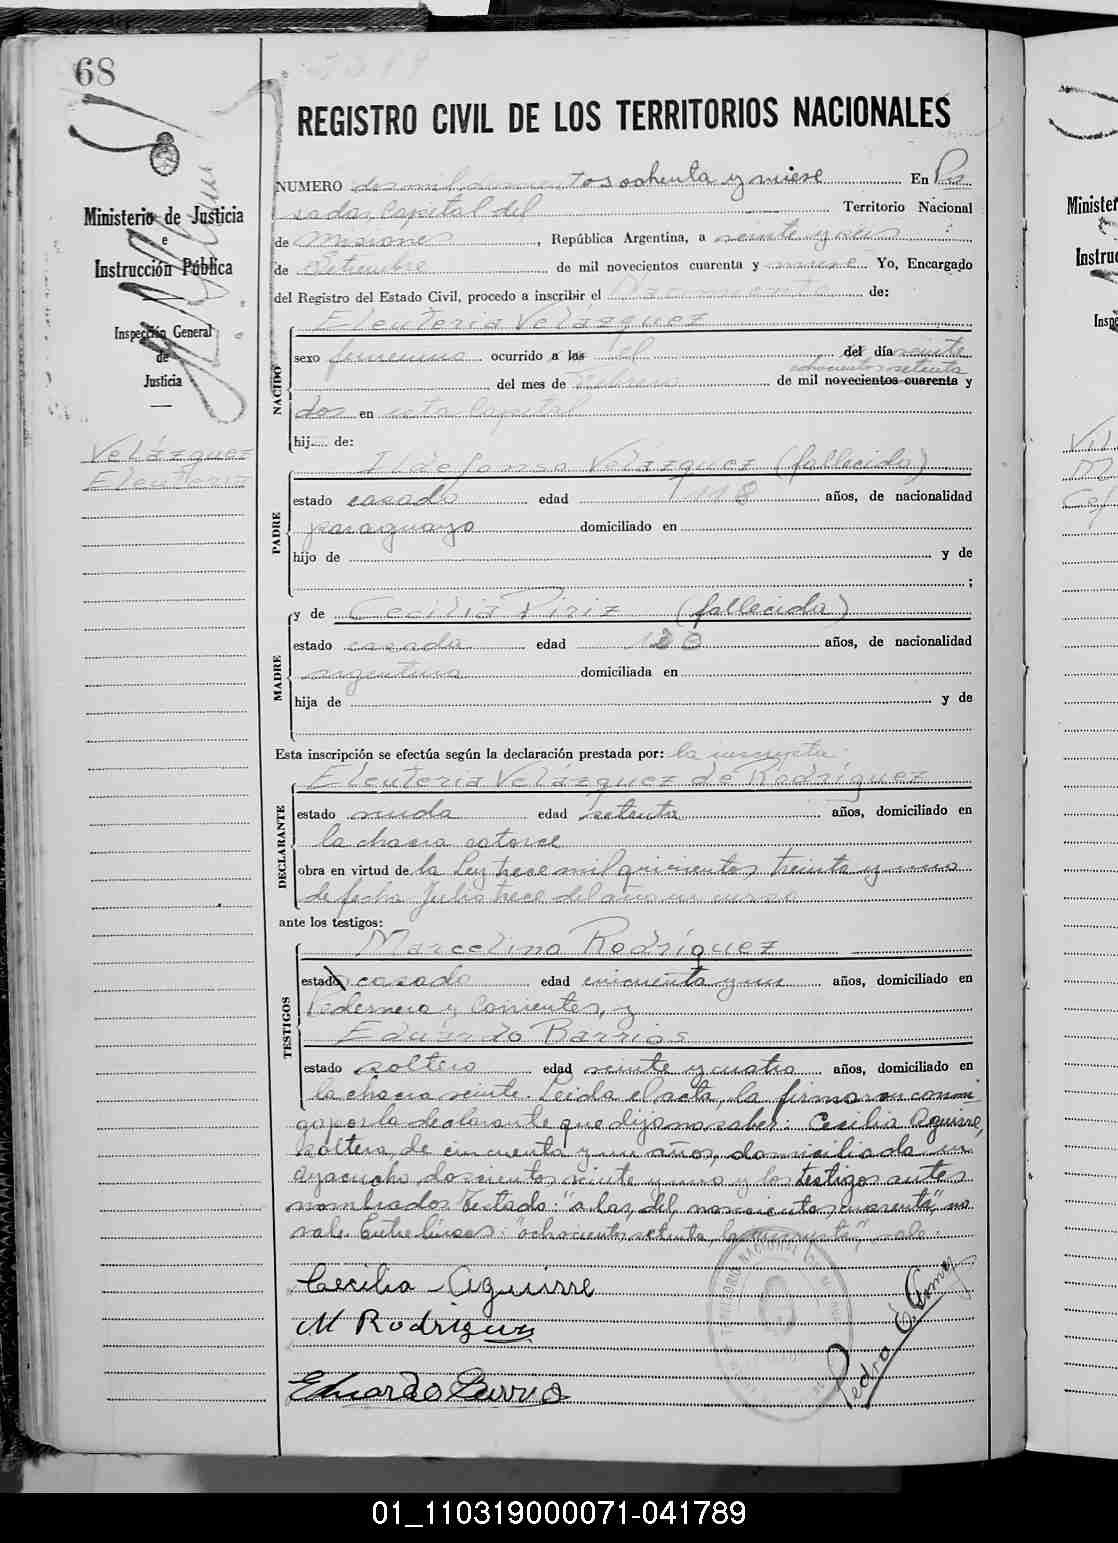 68
REGISTRO CIVIL DE LOS TERRITORIOS NACIONALES
Ministerio de Justicia
e
Instrucción Pública
Inspección General
de
Justicia
Velázquez
Eleuteria
NUMERO dos mil doscientos ochenta y nueve En Po
sadas, Capital del Territorio Nacional
de Misiones, República Argentina, a veinte y seis
de Setiembre de mil novecientos cuarenta y nueve Yo, Encargado
del Registro del Estado Civil, procedo a inscribir el Nacimiento de:
NACIDO
Eleuteria Velázquez
sexo femenino ocurrido a las el del día veinte
ochocientos setenta
del mes de Febrero de mil novecientos cuarenta y
dos en esta Capital
hij.... de:
PADRE
Ildefonso Velázquez (fallecido)
estado casado edad 118 años, de nacionalidad
paraguayo domiciliado en
hijo de y de
;
MADRE
y de Cecilia Piriz (fallecida)
estado casada edad años, de nacionalidad
argentina domiciliada en
hija de y de
Esta inscripción se efectúa según la declaración prestada por: la inscripta
DECLARANTE
Eleuteria Velázquez de Rodríguez
estado viuda edad setenta años, domiciliado en
la chacra catorce
obra en virtud de la Ley trece mil quinientos treinta y uno
de fecha Julio trece del año en curso
ante los testigos:
TESTIGOS
Marcelino Rodríguez
estado casado edad cincuenta y un años, domiciliado en
Pedernera y Corrientes, y
Eduardo Barrios
estado soltero edad veinte y cuatro años, domiciliado en
la chacra veinte. Leida el acta, la firmaron conmi
go por la declarante que dijo no saber: Cecilia Aguirre,
soltera, de cincuenta y un años, domiciliada en
Ayacucho doscientos veinte y uno y los testigos antes
nombrados Testado: "a las, del, novecientos, cuarenta", no
vale. Entre líneas: "ochocientos setenta, la inscripta", vale.
Cecilia Aguirre
M Rodriguez
Eduardo Barrios
Pedro E. Gomez
Minister
Instruc
Inspe
01_110319000071-041789